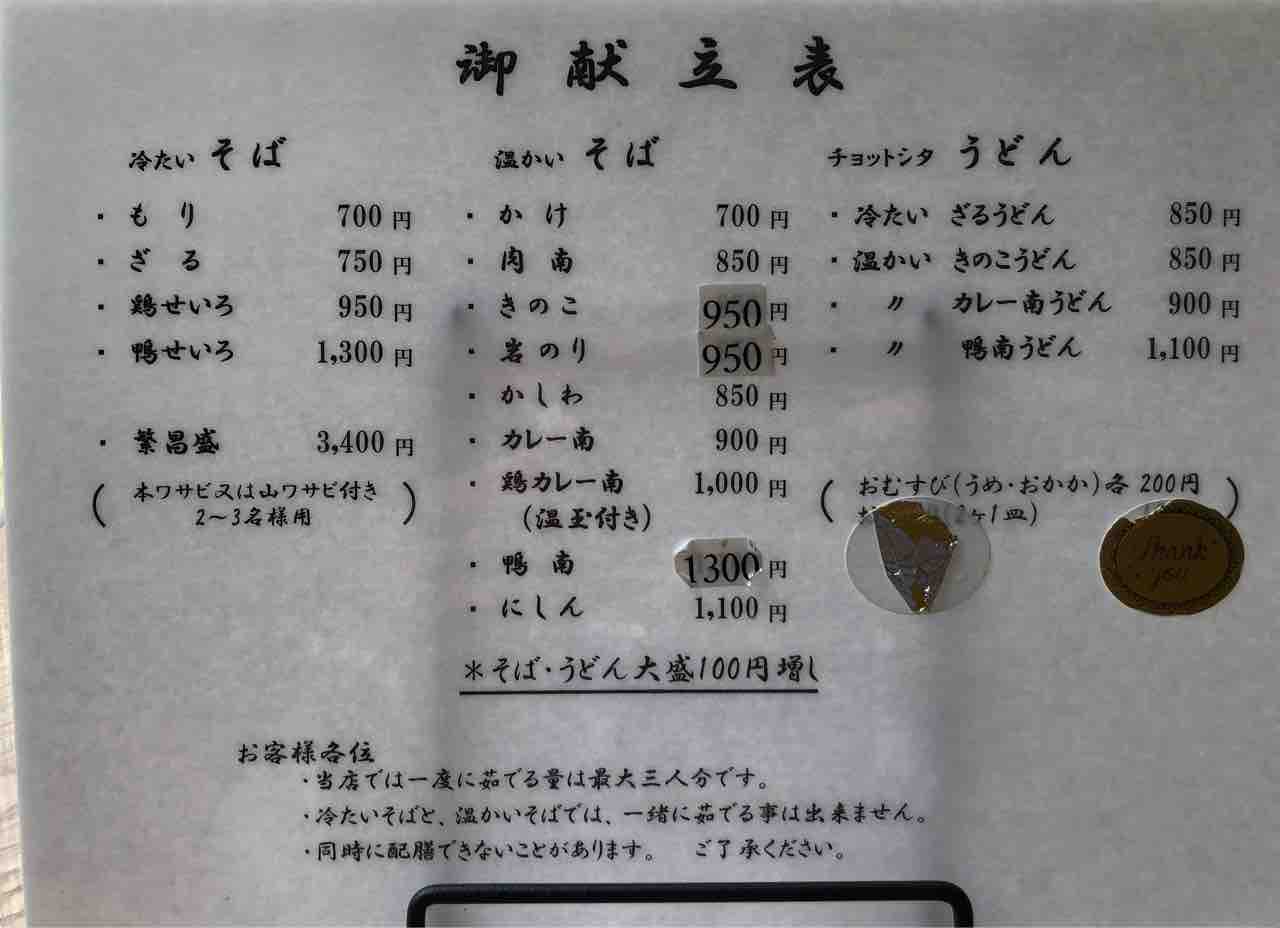 御献立表
冷たい そば
・もり 700円
・ざる 750円
・鶏せいろ 950円
・鴨せいろ 1,300円
・繁昌盛 3,400円
(本ワサビ又は山ワサビ付き
2〜3名様用)
温かい そば
・かけ 700円
・肉南 850円
・きのこ 950円
・岩のり 950円
・かしわ 850円
・カレー南 900円
・鶏カレー南 1,000円
(温玉付き)
・鴨南 1300円
・にしん 1,100円
チョットシタ うどん
・冷たい ざるうどん 850円
・温かい きのこうどん 850円
・〃 カレー南うどん 900円
・〃 鴨南うどん 1,100円
(おむすび(うめ・おかか)各 200円
(2ヶ1皿)
Thank
you
＊そば・うどん大盛100円増し
お客様各位
・当店では一度に茹でる量は最大三人分です。
・冷たいそばと、温かいそばでは、一緒に茹でる事は出来ません。
・同時に配膳できないことがあります。 ご了承ください。